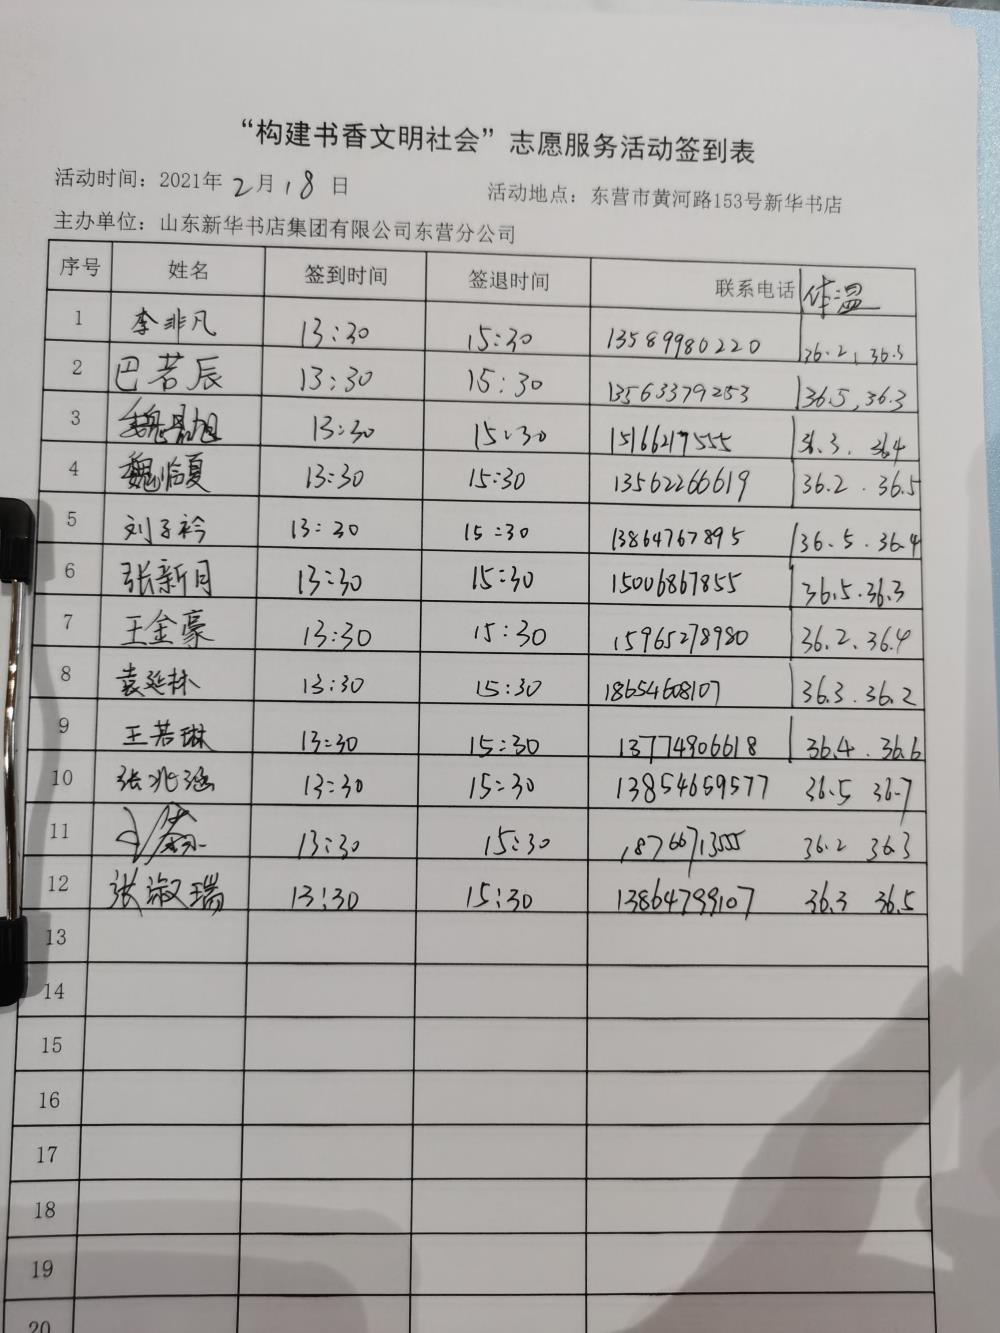 “构建书香文明社会”志愿服务活动签到表
活动时间：2021年2月18日 活动地点：东营市黄河路153号新华书店
主办单位：山东新华书店集团有限公司东营分公司
序号 姓名 签到时间 签退时间 联系电话 体温
1 李非凡 13:30 15:30 13589980220 36.2, 36.3
2 巴若辰 13:30 15:30 13563379253 36.5, 36.3
3 13:30 15:30 15166217555 36.3. 36.4
4 魏临夏 13:30 15:30 13562266619 36.2. 36.5
5 刘子衿 13:30 15:30 13864767895 36.5. 36.4
6 张新月 13:30 15:30 15006867855 36.5. 36.3
7 王金豪 13:30 15:30 15965278980 36.2. 36.4
8 袁延林 13:30 15:30 18654608107 36.3. 36.2
9 王若琳 13:30 15:30 13774906618 36.4. 36.6
10 张兆涵 13:30 15:30 13854659577 36.5 36.7
11 13:30 15:30 18766713555 36.2 36.3
12 张淑瑞 13:30 15:30 13864799107 36.3 36.5
13
14
15
16
17
18
19
20